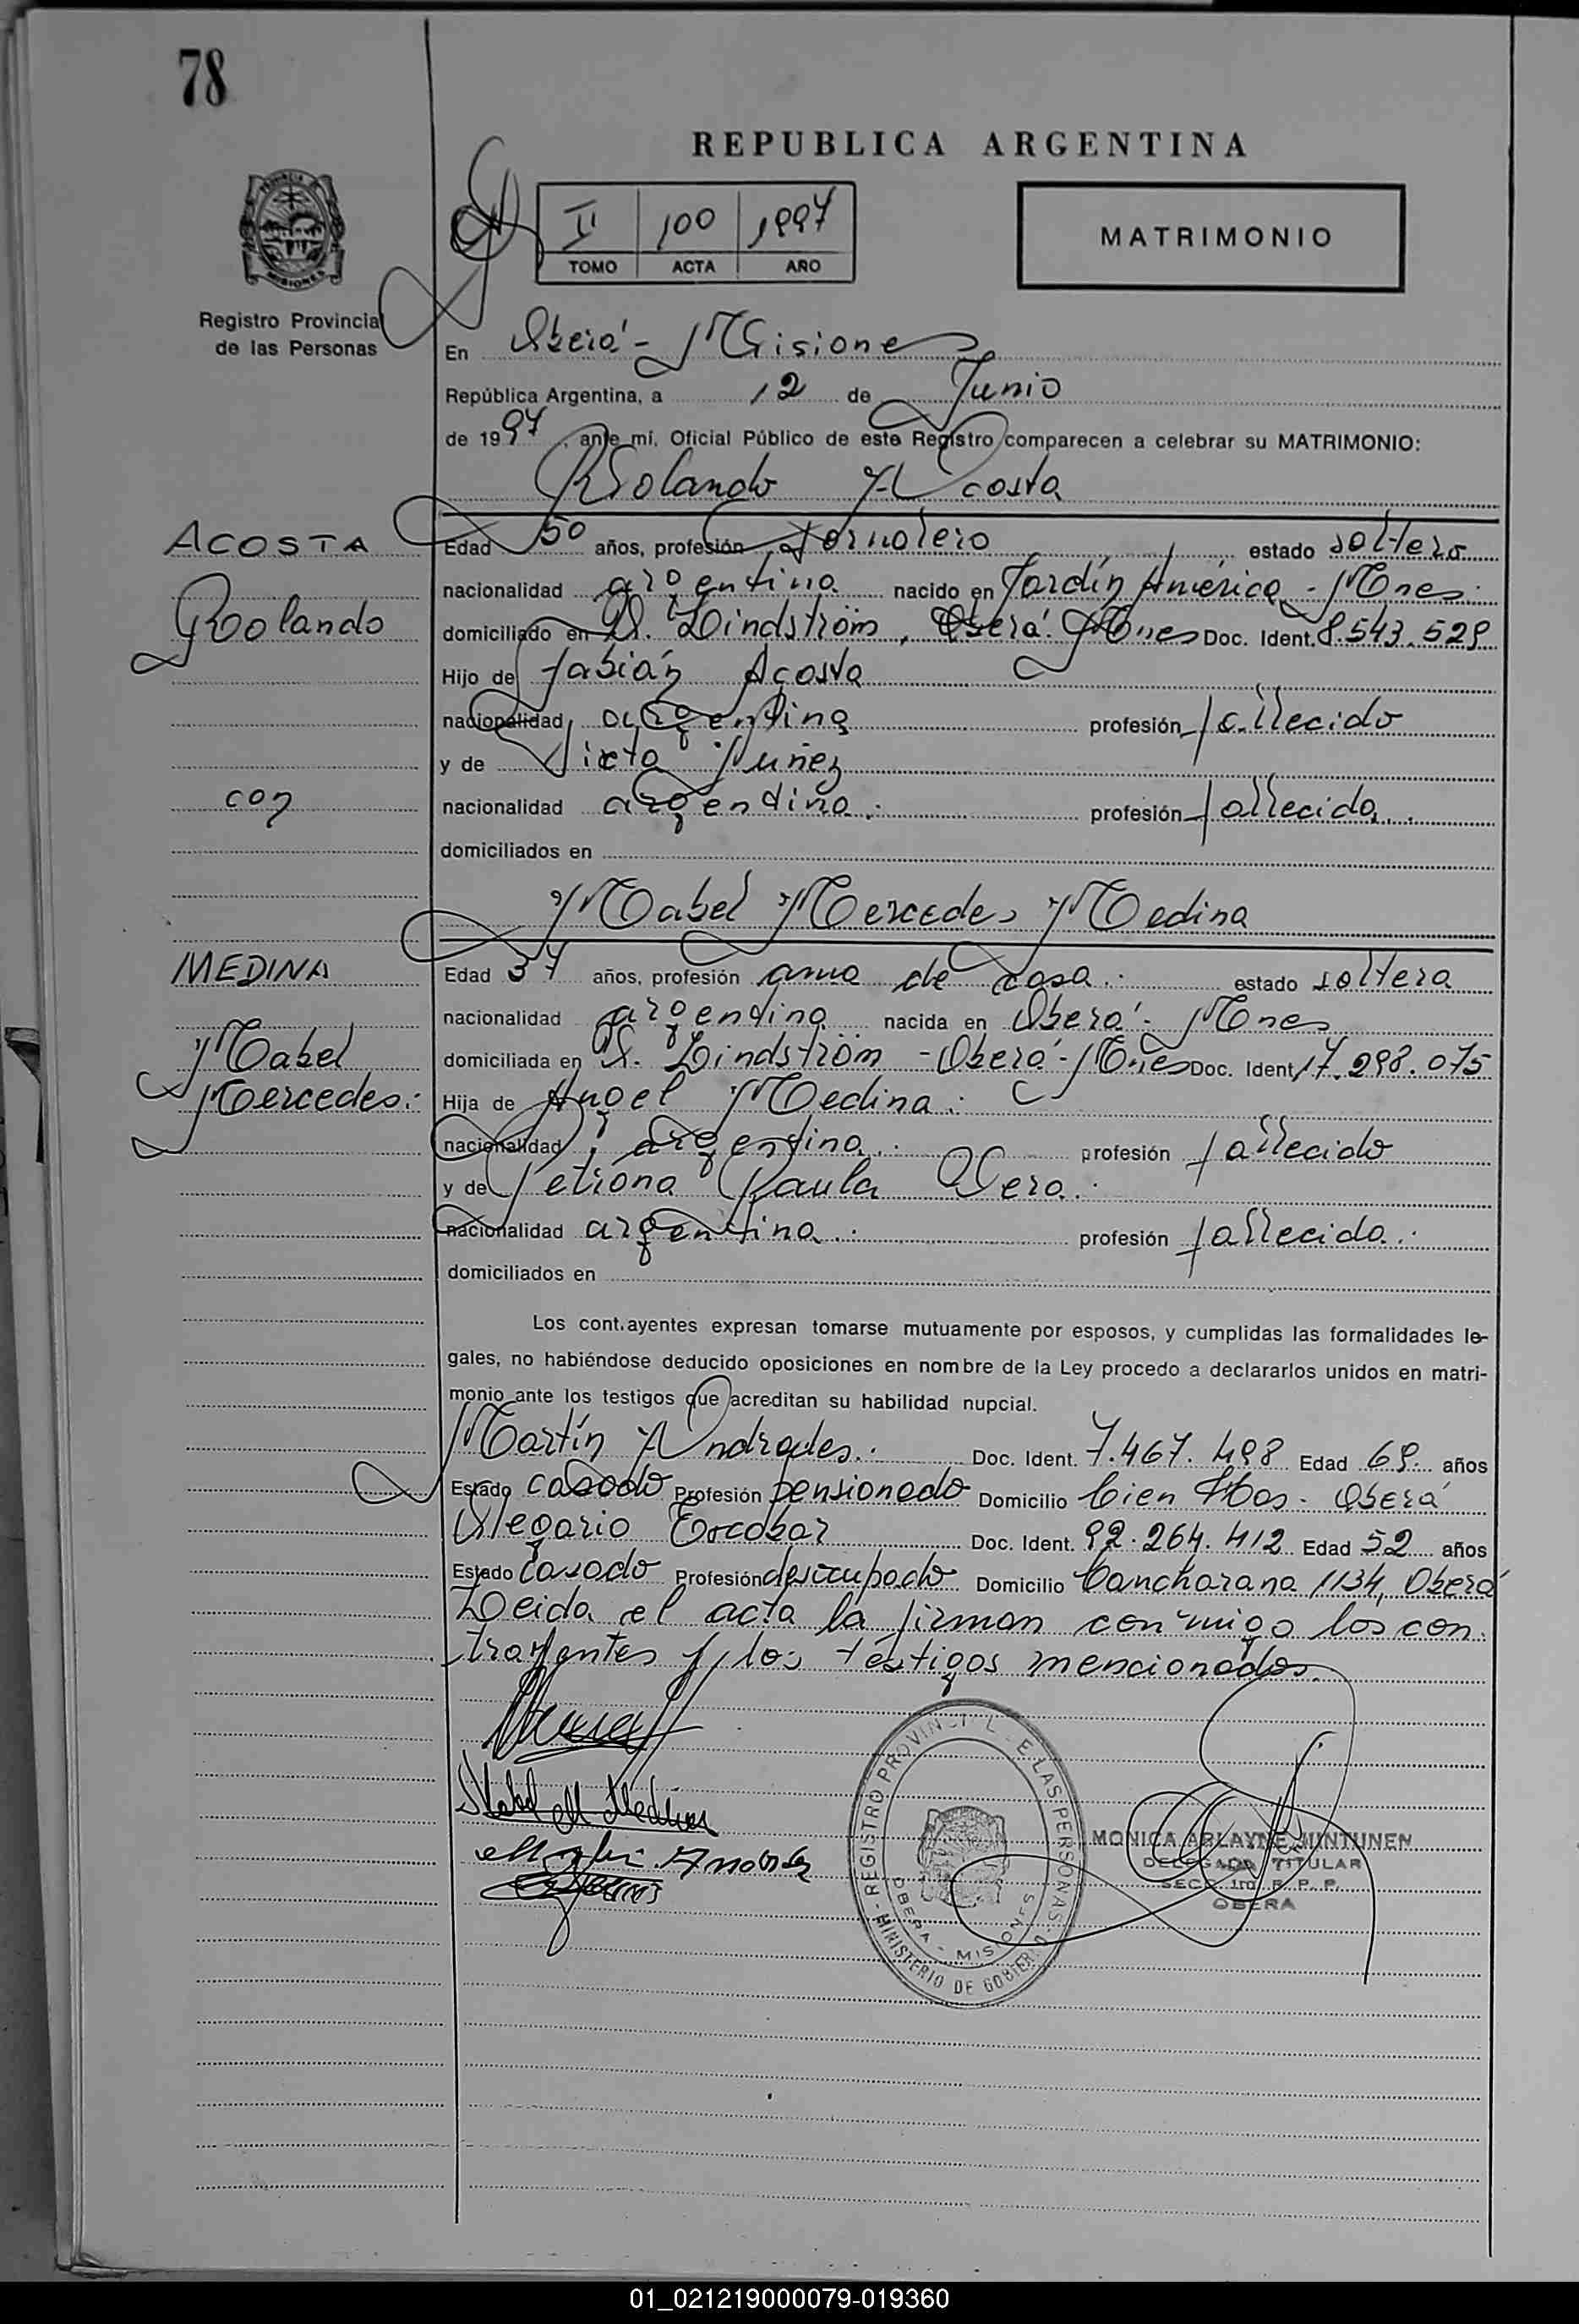 78
REPUBLICA ARGENTINA
II 100 1997
TOMO ACTA AÑO
MATRIMONIO
Registro Provincial
de las Personas
En Oberá - Misiones
República Argentina, a 12 de Junio
de 1997, ante mí, Oficial Público de este Registro comparecen a celebrar su MATRIMONIO:
Rolando Acosta
ACOSTA
Rolando
con
MEDINA
Mabel
Mercedes.:
Edad 50 años, profesión Jornalero estado soltero
nacionalidad argentina nacido en Jardín América - Mnes.
domiciliado en V. Lindström, Oberá. Mnes Doc. Ident. 8.543.529
Hijo de Fabián Acosta
nacionalidad argentina profesión fallecido
y de Sixta Nuñez
nacionalidad argentina.: profesión fallecida.
domiciliados en
Mabel Mercedes Medina
Edad 37 años, profesión ama de casa.: estado soltera
nacionalidad argentina nacida en Oberá - Mnes
domiciliada en V. Lindström - Oberá - Mnes Doc. Ident. 17.298.075
Hija de Angel Medina.:
nacionalidad argentina.: profesión fallecido
y de Petrona Paula Vera.:
nacionalidad argentina.: profesión fallecida.:
domiciliados en
Los contrayentes expresan tomarse mutuamente por esposos, y cumplidas las formalidades le-
gales, no habiéndose deducido oposiciones en nombre de la Ley procedo a declararlos unidos en matri-
monio ante los testigos que acreditan su habilidad nupcial.
Martín Andrades.: Doc. Ident. 7.467.498 Edad 69 años
Estado casado Profesión pensionado Domicilio Cien Has. Oberá
Olegario Escobar Doc. Ident. 92.264.412 Edad 52 años
Estado casado Profesión desocupado Domicilio Cancharana 1134, Oberá
Leida el acta la firman conmigo los con-
trayentes y los testigos mencionados
Mabel M Medina
REGISTRO PROVINCIAL DE LAS PERSONAS
OBERA - MISIONES
MINISTERIO DE GOBIERNO
MONICA ARLAYNE HINTUNEN
DELEGADA TITULAR
SECC. 1ra. R. P. P.
OBERA
01_021219000079-019360